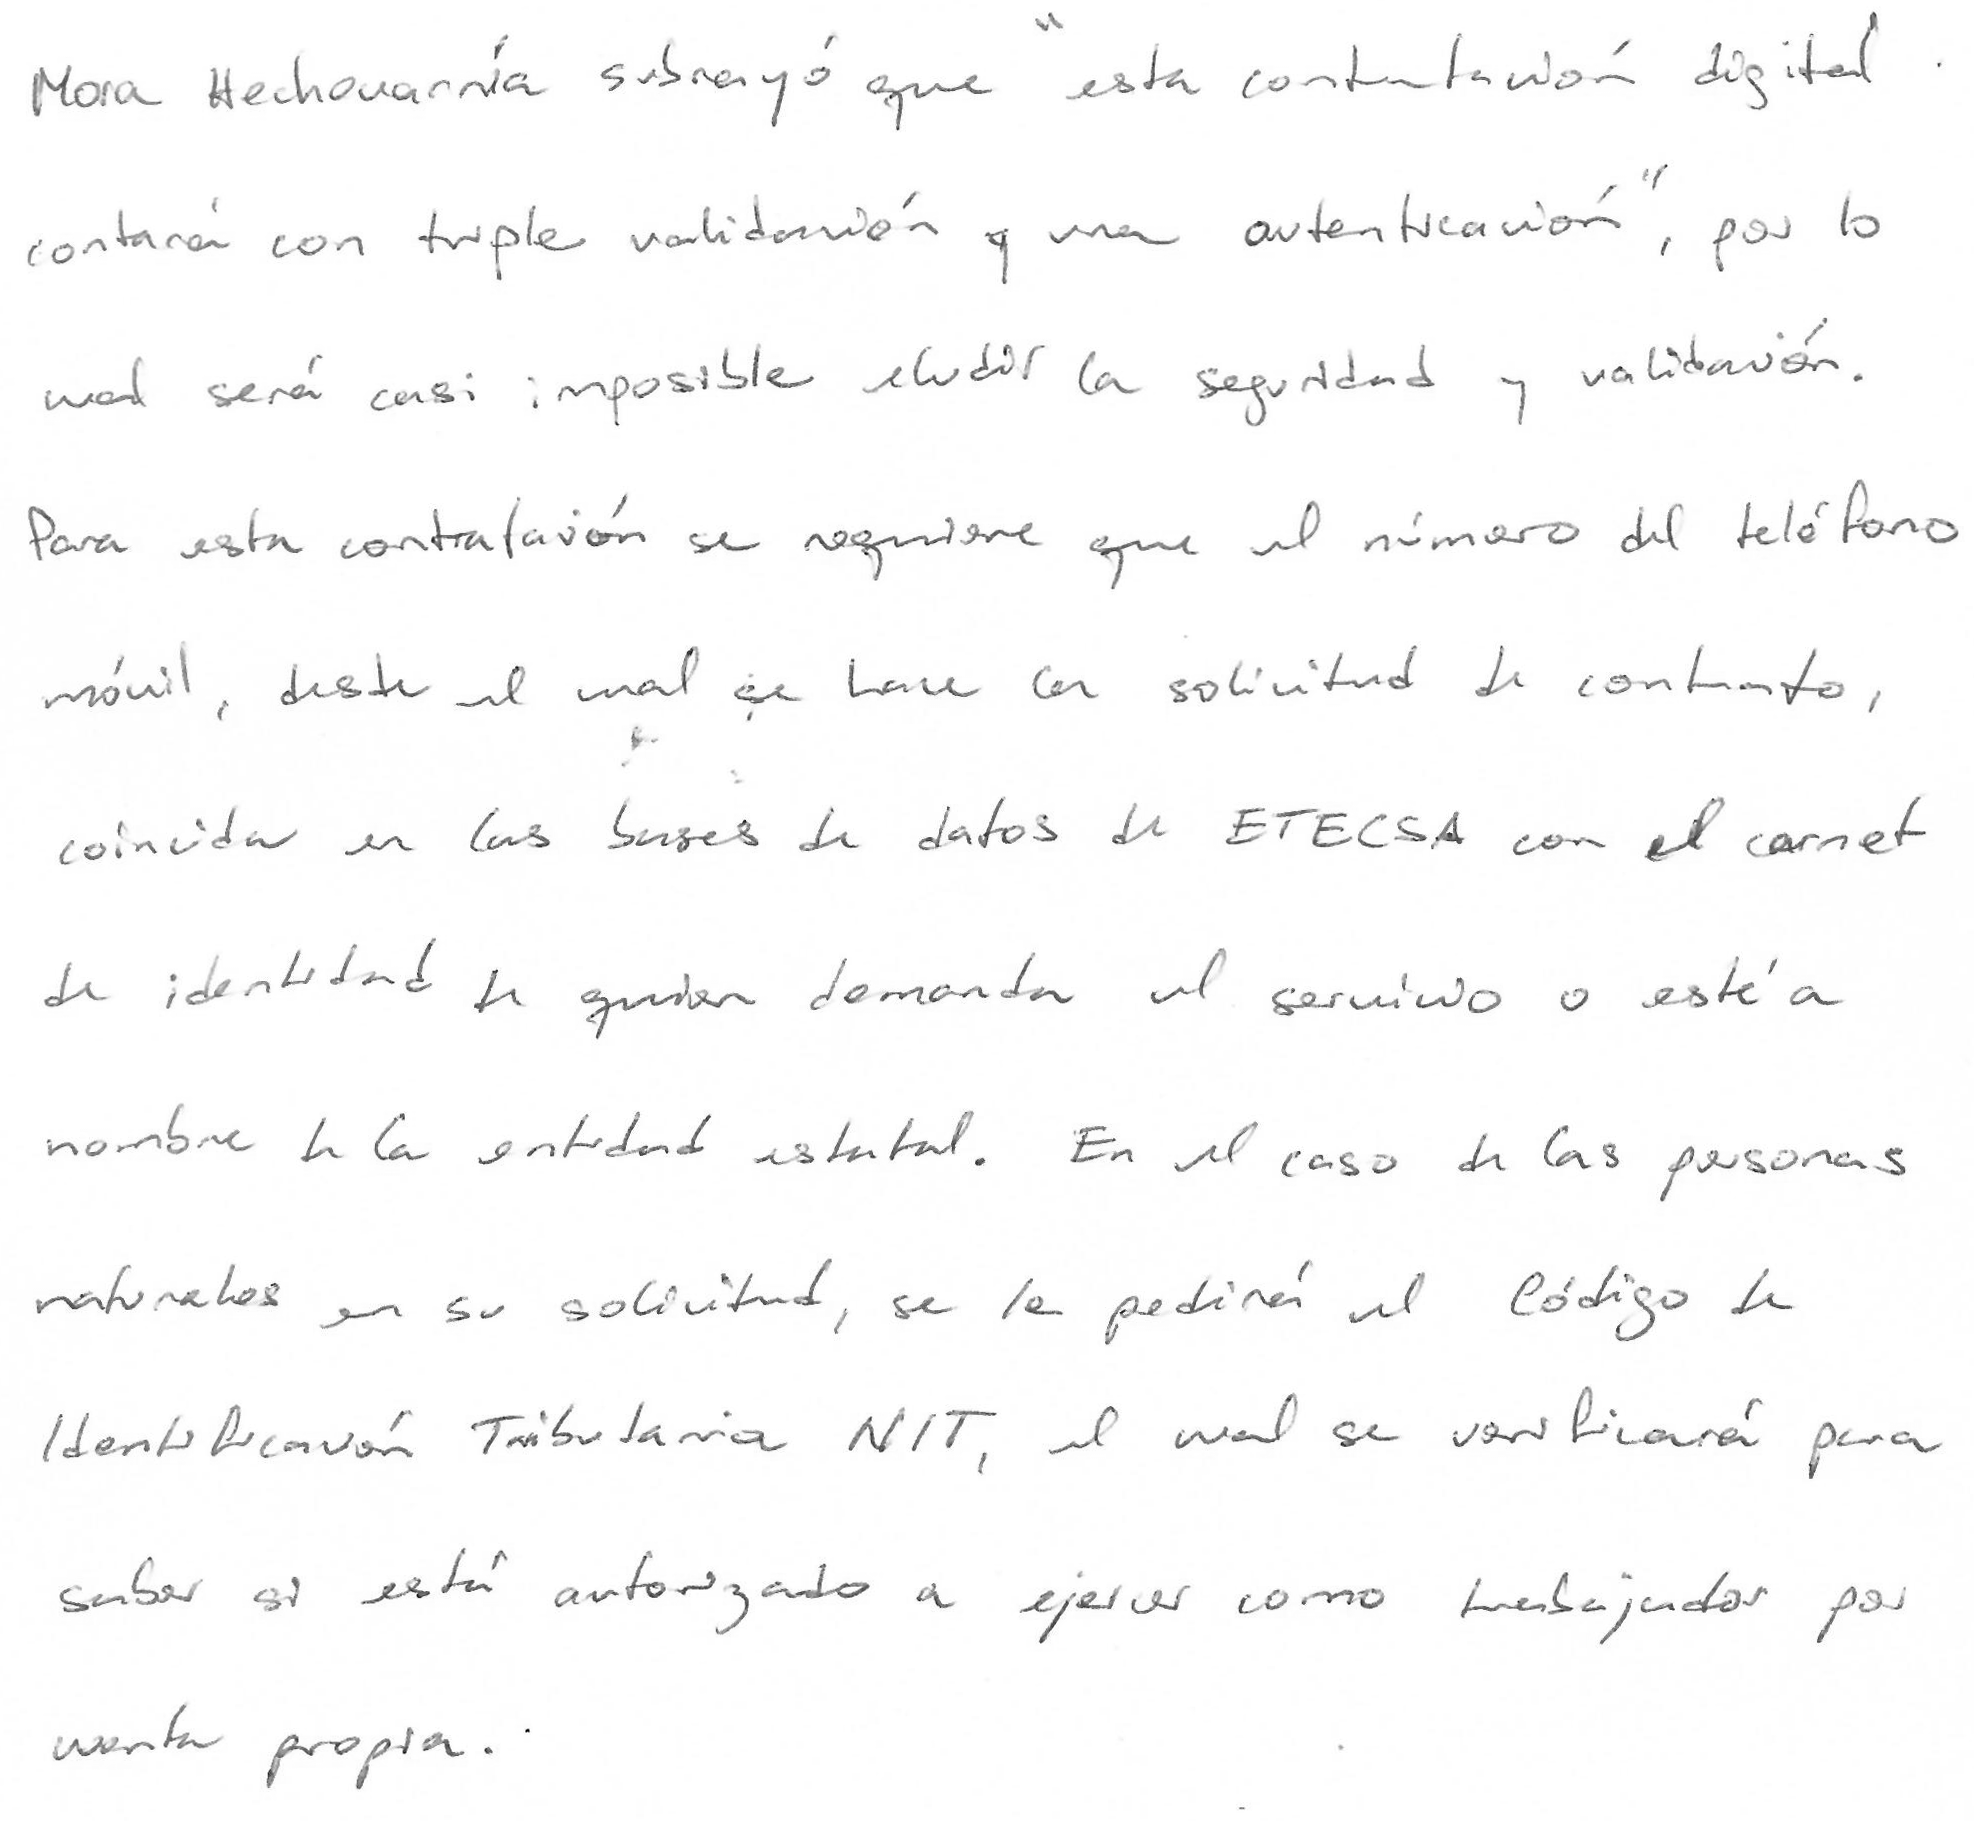 Mora Hechavarría subrayó que "esta contratación digital
contará con triple validación y una autenticación", por lo
cual será casi imposible eludir la seguridad y validación.
Para esta contratación se requiere que el número del teléfono
móvil, desde el cual se hace la solicitud de contrato,
coincida en las bases de datos de ETECSA con el carnet
de identidad de quien demanda el servicio o esté a
nombre de la entidad estatal. En el caso de las personas
naturales en su solicitud, se le pedirá el Código de
Identificación Tributaria NIT, el cual se verificará para
saber si está autorizado a ejercer como trabajador por
cuenta propia.